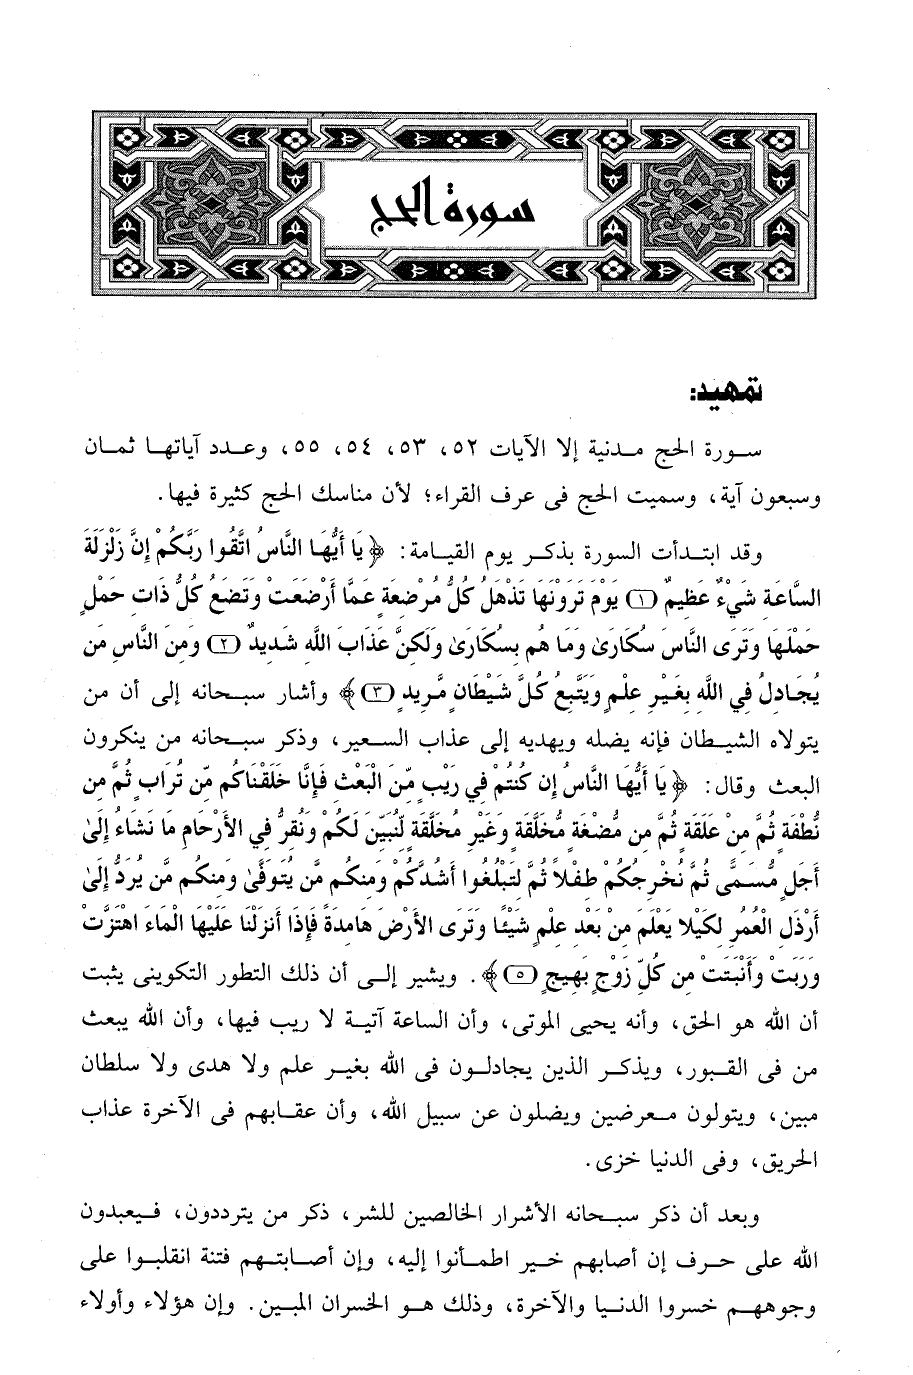 سورة الحج
تمهيد:
سورة الحج مدنية إلا الآيات ٥٢، ٥٣، ٥٤، ٥٥، وعدد آياتها ثمان
وسبعون آية، وسميت الحج فى عرف القراء؛ لأن مناسك الحج كثيرة فيها.
وقد ابتدأت السورة بذكر يوم القيامة: ﴿يَا أَيُّهَا النَّاسُ اتَّقُوا رَبَّكُمْ إِنَّ زَلْزَلَةَ
السَّاعَةِ شَيْءٌ عَظِيمٌ (١) يَوْمَ تَرَوْنَهَا تَذْهَلُ كُلُّ مُرْضِعَةٍ عَمَّا أَرْضَعَتْ وَتَضَعُ كُلُّ ذَاتِ حَمْلٍ
حَمْلَهَا وَتَرَى النَّاسَ سُكَارَىٰ وَمَا هُم بِسُكَارَىٰ وَلَكِنَّ عَذَابَ اللَّهِ شَدِيدٌ (٢) وَمِنَ النَّاسِ مَن
يُجَادِلُ فِي اللَّهِ بِغَيْرِ عِلْمٍ وَيَتَّبِعُ كُلَّ شَيْطَانٍ مَّرِيدٍ (٣)﴾ وأشار سبحانه إلى أن من
يتولاه الشيطان فإنه يضله ويهديه إلى عذاب السعير، وذكر سبحانه من ينكرون
البعث وقال: ﴿يَا أَيُّهَا النَّاسُ إِن كُنتُمْ فِي رَيْبٍ مِّنَ الْبَعْثِ فَإِنَّا خَلَقْنَاكُم مِّن تُرَابٍ ثُمَّ مِن
نُّطْفَةٍ ثُمَّ مِنْ عَلَقَةٍ ثُمَّ مِن مُّضْغَةٍ مُّخَلَّقَةٍ وَغَيْرِ مُخَلَّقَةٍ لِّنُبَيِّنَ لَكُمْ وَنُقِرُّ فِي الأَرْحَامِ مَا نَشَاءُ إِلَىٰ
أَجَلٍ مُّسَمًّى ثُمَّ نُخْرِجُكُمْ طِفْلاً ثُمَّ لِتَبْلُغُوا أَشُدَّكُمْ وَمِنكُم مَّن يُتَوَفَّىٰ وَمِنكُم مَّن يُرَدُّ إِلَىٰ
أَرْذَلِ الْعُمُرِ لِكَيْلا يَعْلَمَ مِنْ بَعْدِ عِلْمٍ شَيْئًا وَتَرَى الأَرْضَ هَامِدَةً فَإِذَا أَنزَلْنَا عَلَيْهَا الْمَاءَ اهْتَزَّتْ
وَرَبَتْ وَأَنْبَتَتْ مِن كُلِّ زَوْجٍ بَهِيجٍ (٥)﴾. ويشير إلى أن ذلك التطور التكوينى يثبت
أن الله هو الحق، وأنه يحيى الموتى، وأن الساعة آتية لا ريب فيها، وأن الله يبعث
من فى القبور، ويذكر الذين يجادلون فى الله بغير علم ولا هدى ولا سلطان
مبين، ويتولون معرضين ويضلون عن سبيل الله، وأن عقابهم فى الآخرة عذاب
الحريق، وفى الدنيا خزى.
وبعد أن ذكر سبحانه الأشرار الخالصين للشر، ذكر من يترددون، فيعبدون
الله على حرف إن أصابهم خير اطمأنوا إليه، وإن أصابتهم فتنة انقلبوا على
وجوههم خسروا الدنيا والآخرة، وذلك هو الخسران المبين. وإن هؤلاء وأولاء